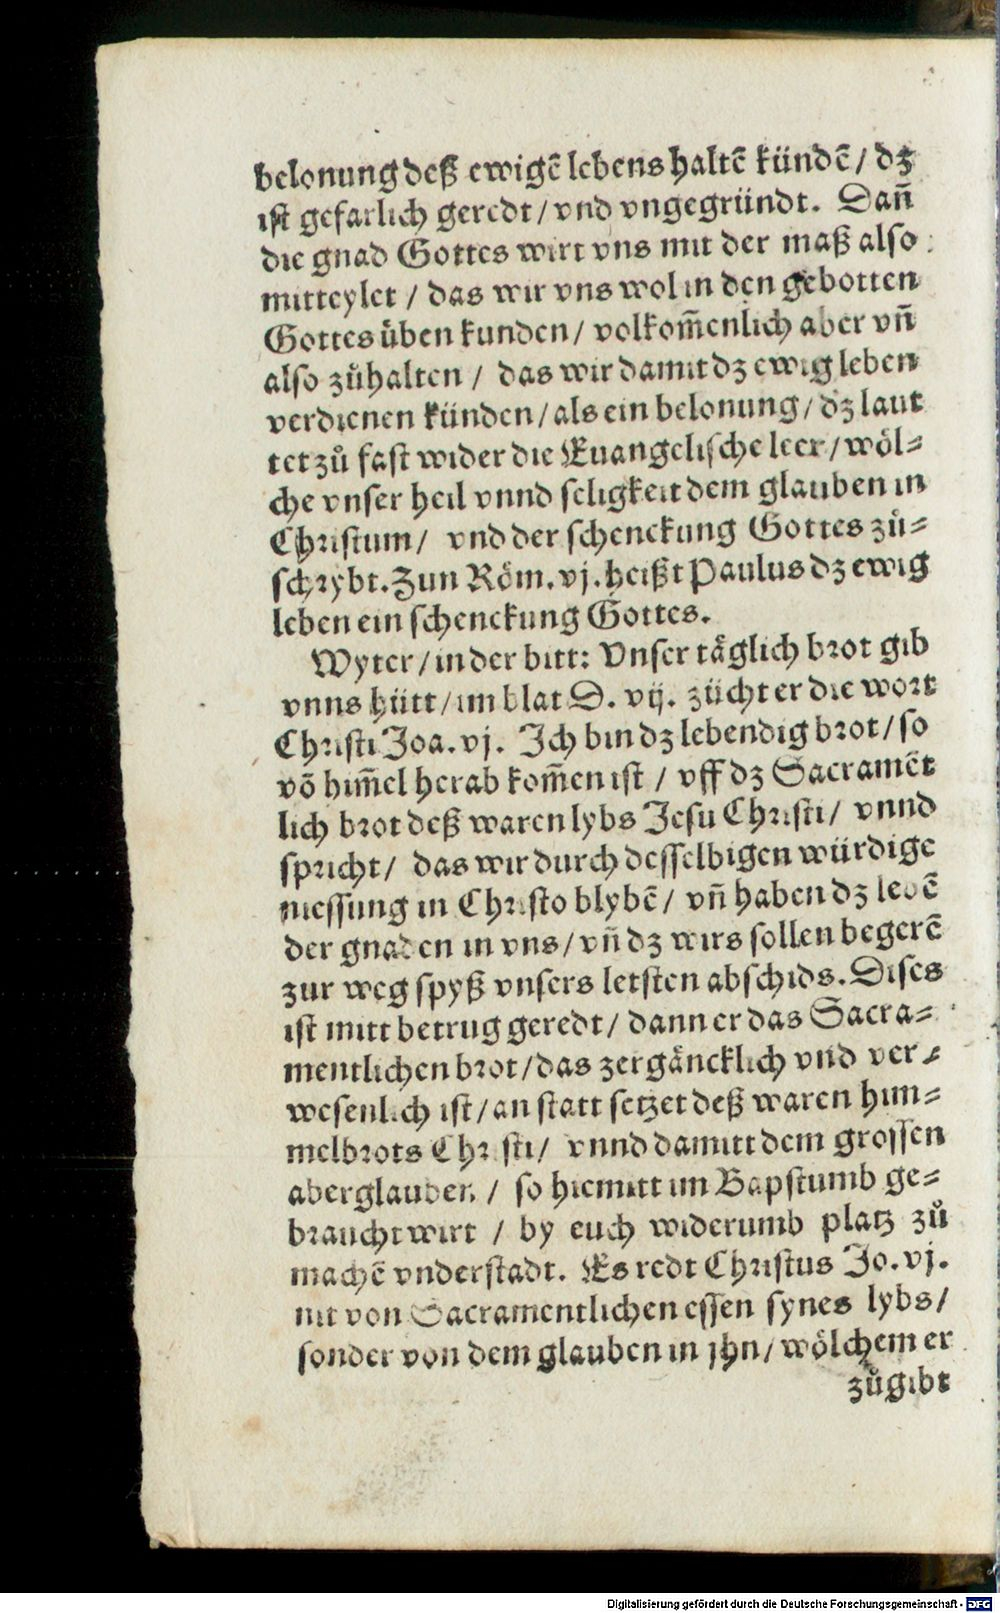 belonung deß ewigē lebens haltē kündē / dz
ist gefarlich geredt / vnd vngegründt. Dañ
die gnad Gottes wirt vns mit der maß also
mitteylet / das wir vns wol in den gebotten
Gottes üben kunden / volkom̄enlich aber vñ
also zůhalten / das wir damit dz ewig leben
verdienen künden / als ein belonung / dz laut
tet zů fast wider die Euangelische leer / wöl⸗
che vnser heil vnnd seligkeit dem glauben in
Christum / vnd der schenckung Gottes zů⸗
schrybt. Zun Röm. vj. heißt Paulus dz ewig
leben ein schenckung Gottes.
Wyter / in der bitt: Vnser täglich brot gib
vnns hütt / im blat D. vij. zücht er die wort
Christi Joa. vj. Ich bin dz lebendig brot / so
vō him̄el herab kom̄en ist / vff dz Sacramēt
lich brot deß waren lybs Jesu Christi / vnnd
spricht / das wir durch desselbigen würdige
niessung in Christo blybē / vñ haben dz lebē
der gnaden in vns / vñ dz wirs sollen begerē
zur weg spyß vnsers letsten abschids. Dises
ist mitt betrug geredt / dann er das Sacra⸗
mentlichen brot / das zergäncklich vnd ver⸗
wesenlich ist / an statt setzet deß waren him⸗
melbrots Christi / vnnd damitt dem grossen
aberglauben / so hiemitt im Bapstumb ge⸗
braucht wirt / by euch widerumb platz zů
machē vnderstadt. Es redt Christus Jo. vj.
nit von Sacramentlichen essen synes lybs /
sonder von dem glauben in jhn / wölchem er
zůgibt
Digitalisierung gefördert durch die Deutsche Forschungsgemeinschaft - DFG